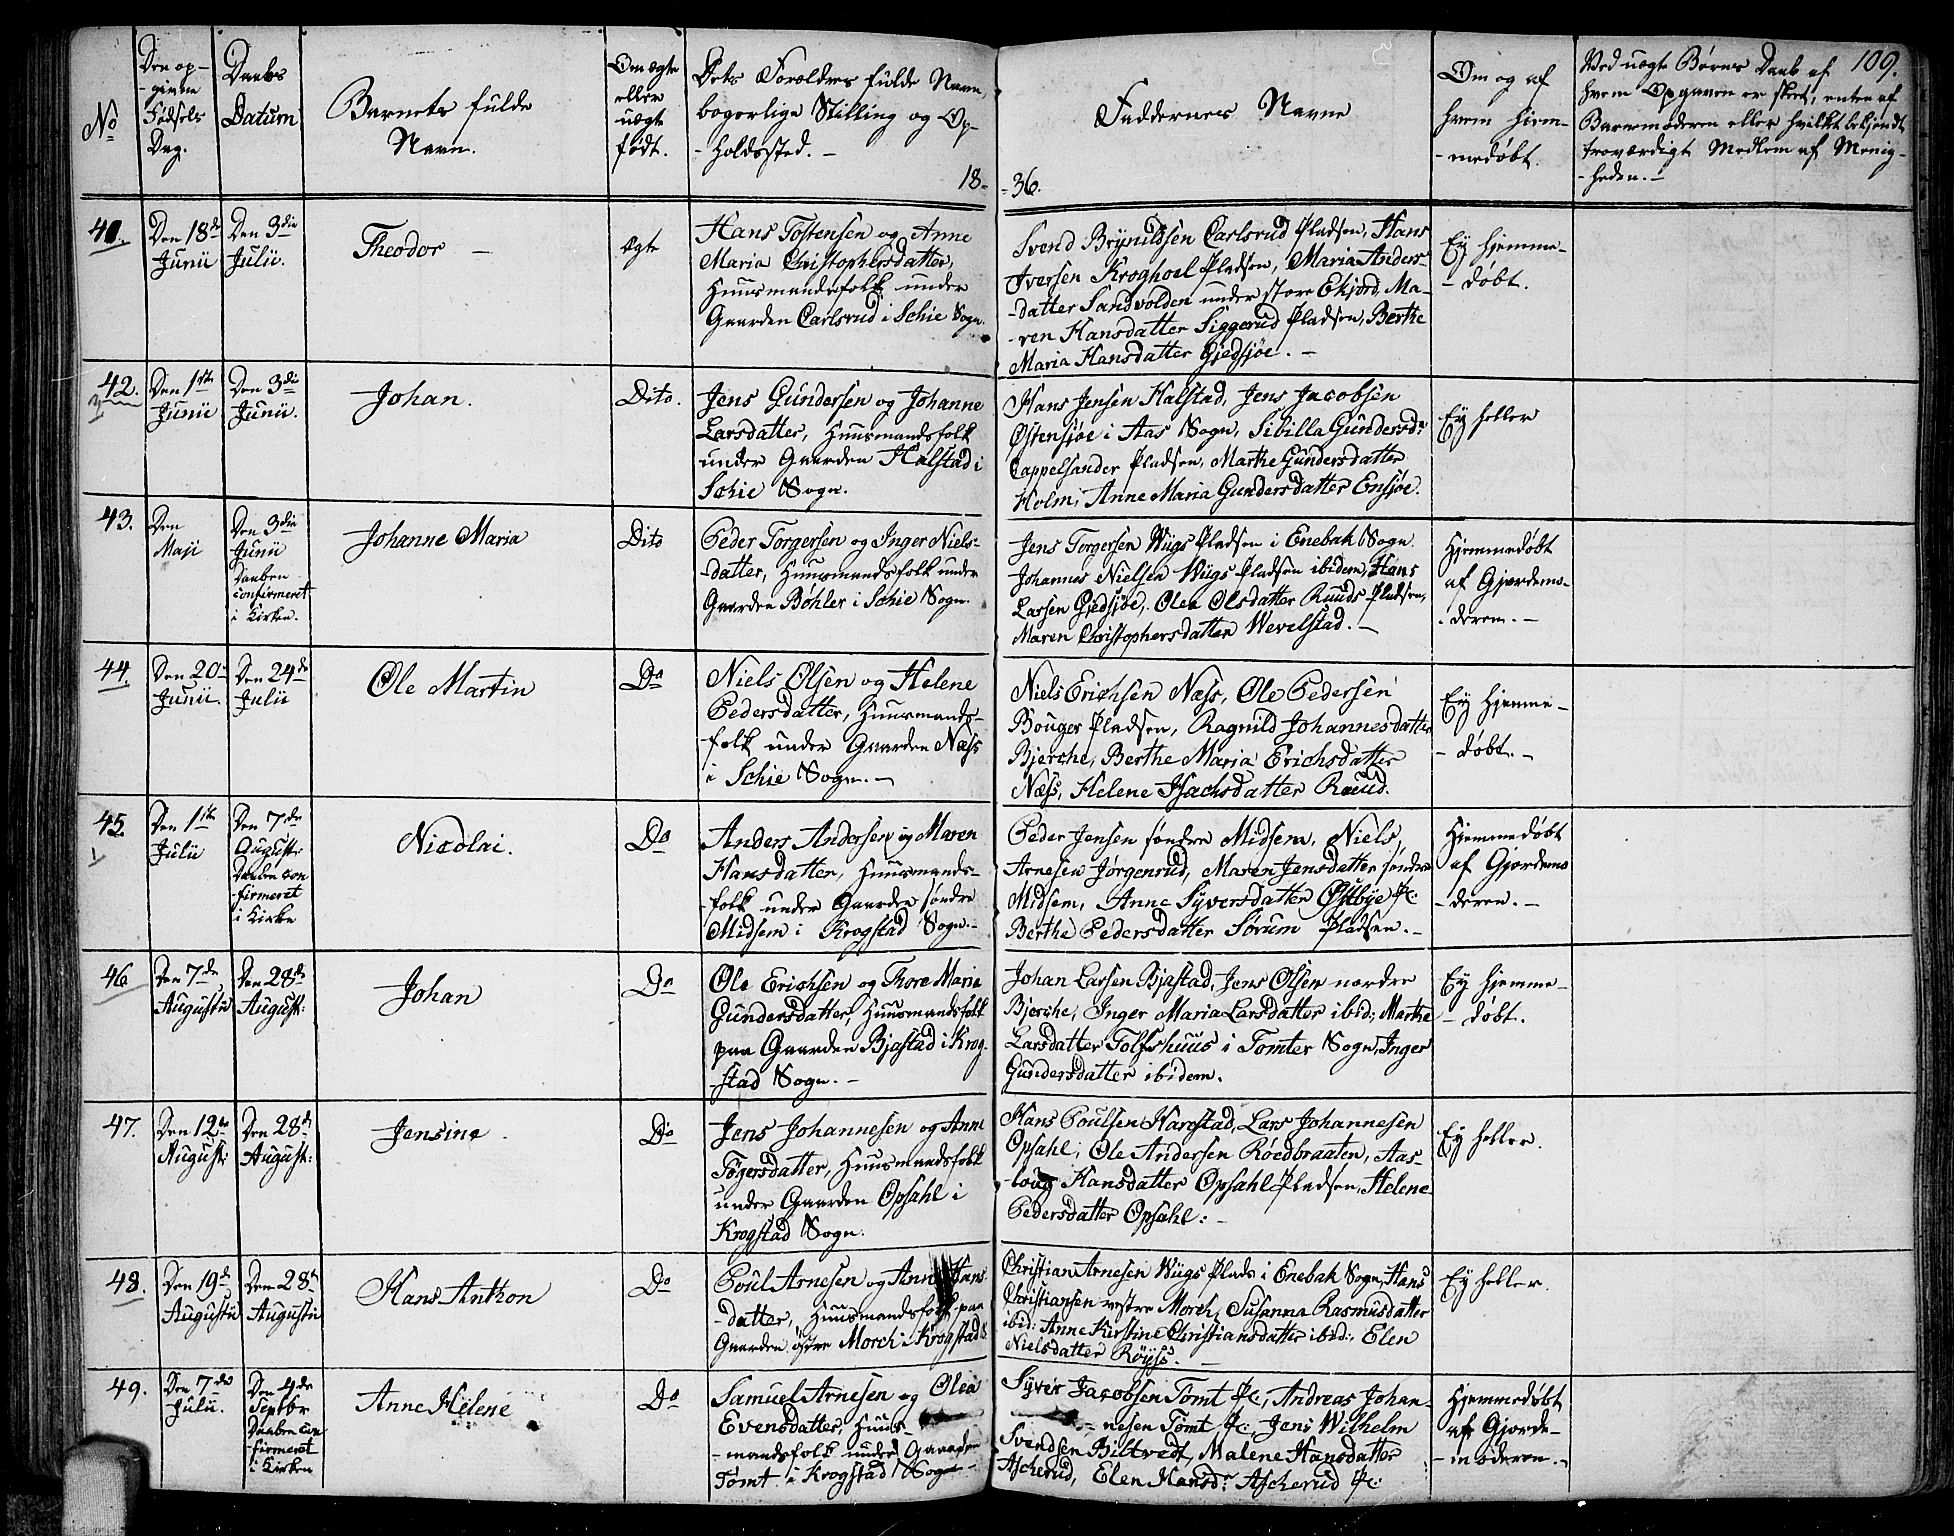 109.
No
Den op-
-given
Fødsels
Dag.
Daabs
Datum
Barnets fulde
Navn.
Om ægte
eller
uægte
født.
Dets Forældres fulde Navn,
borgerlige Stilling og Op-
-holdssted. -
18-
Faddernes Navne
-36.
Om og af
hvem hiem-
-medøbt.
Ved uægte Børns Daab af
hvem Opgaven er skeet, enten af
Barnemoderen eller hvilket bekjendt
troværdigt Medlem af Menig-
-heden. -
41.
Den 18de
Junii
Den 3die
Julii.
Theodor -
ægte
Hans Tostensen og Anne
Maria Christophersdatter,
Huusmandsfolk under
Gaarden Carlsrud i Schie Sogn.
Svend Brynildsen Carlsrud Pladsen, Hans
Iversen Kroghoel Pladsen, Maria Anders-
-datter Sandvolden under store Ekjord, Ma-
-ren Hansdatter Siggerud Pladsen, Berthe
Maria Hansdatter Gjedsjøe. -
Ey hjemme-
-døbt.
42.
Den 1ste
Junii
Den 3die
Junii.
Johan.
Dito.
Jens Gundersen og Johanne
Larsdatter, Huusmandsfolk
under Gaarden Halstad i
Schie Sogn.
Hans Jensen Halstad, Jens Jacobsen
Østensjøe i Aas Sogn, Sibilla Gundersdr
Cappelsander Pladsen, Marthe Gundersdatter
Holm, Anne Maria Gundersdatter Ensjøe.
Ey heller
43.
Den
Maji
Den 3die
Junii
Daaben
confirmeret
i Kirken.
Johanne Maria
Dito
Peder Torgersen og Inger Niels-
-datter, Huusmandsfolk under
Gaarden Bøhler i Schie Sogn.
Jens Torgersen Wiigs Pladsen i Enebak Sogn.
Johannes Nielsen Wiigs Pladsen ibidem, Hans
Larsen Gjedsjøe, Olea Olsdatter Ruuds Pladsen,
Maren Christophersdatter Wevelstad. -
Hjemmedøbt
af Gjordemo-
-deren. -
44.
Den 20de
Junii.
Den 24de
Julii
Ole Martin
Do
Niels Olsen og Helene
Pedersdatter, Huusmands-
-folk under Gaarden Næss
i Schie Sogn. -
Niels Erichsen Næss, Ole Pedersen
Bouger Pladsen, Ragnild Johannesdatter
Bjerche, Berthe Maria Erichsdatter
Næss, Helene Isachsdatter Ruud.
Ey hjemme-
-døbt. -
45.
Den 1ste
Julii
Den 7de
August:
Daaben con
-firmeret
i Kirke
Nicolai.
Do
Anders Andersen og Maren
Hansdatter, Huusmands-
-folk under Gaarden søndre
Midsem i Krogstad Sogn. -
Peder Jensen søndre Midsem, Niels
Arnesen Jørgenrud, Maren Jensdatter søndre
Midsem, Anne Syversdatter Østbye Pl:
Berthe Pedersdatter Sørum Pladsen. -
Hjemmedøbt
af Gjordemo
-deren. -
46
Den 7de
Augustii
Den 28de
August:
Johan
Do
Ole Erichsen og Thore Maria
Gundersdatter, Huusmandsfolk
paa Gaarden Bjastad i Krog-
-stad Sogn. -
Johan Larsen Bjastad, Jens Olsen nordre
Bjerche, Inger Maria Larsdatter ibid:, Marthe
Larsdatter Tolfshuus i Tomter Sogn, Inger
Gundersdatter ibidem.
Ey hjemme-
-døbt.
47.
Den 12te
August:
Den 28de
August:
Jensine.
Do
Jens Johannesen og Anne
Tøgersdatter, Huusmandsfolk
under Gaarden Opsahl i
Krogstad Sogn.
Hans Poulsen Harestad, Lars Johannesen
Opsahl, Ole Andersen Rødbraaten, Aas-
-loug Hansdatter Opsahl Pladsen, Helene
Pedersdatter Opsahl: -
Ey heller.
48.
Den 19de
Augustii
Den 28de
Augustii
Hans Anthon
Do
Poul Arnesen og Anne Hans-
-datter, Huusmandsfolk paa
Gaarden østre Morch i Krogstad S
Christian Arnesen Wiigs Plads i Enebak Sogn, Hans
Christiansen vestre Morch, Susanna Rasmusdatter
ibid: Anne Kirstine Christiansdatter ibid:, Elen
Nielsdatter Røyss. -
Ey heller.
49.
Den 7de
Julii.
Den 4de
Septbr
Daaben con
-firmeret
i Kirken
Anne Helene
Do
Samuel Arnesen og Olea
Evensdatter, Huus-
-mandsfolk under Gaarden
Tomt i Krogstad Sogn -
Syver Jacobsen Tomt Pl:, Andreas Johan-
-nesen Tomt Pl:, Jens Wilhelm
Svendsen Biltvedt, Malene Hansdatter
Ascherud, Elen Hansdr Ascherud Pl:
Hjemmedøbt
af Gjorde-
-moderen. -